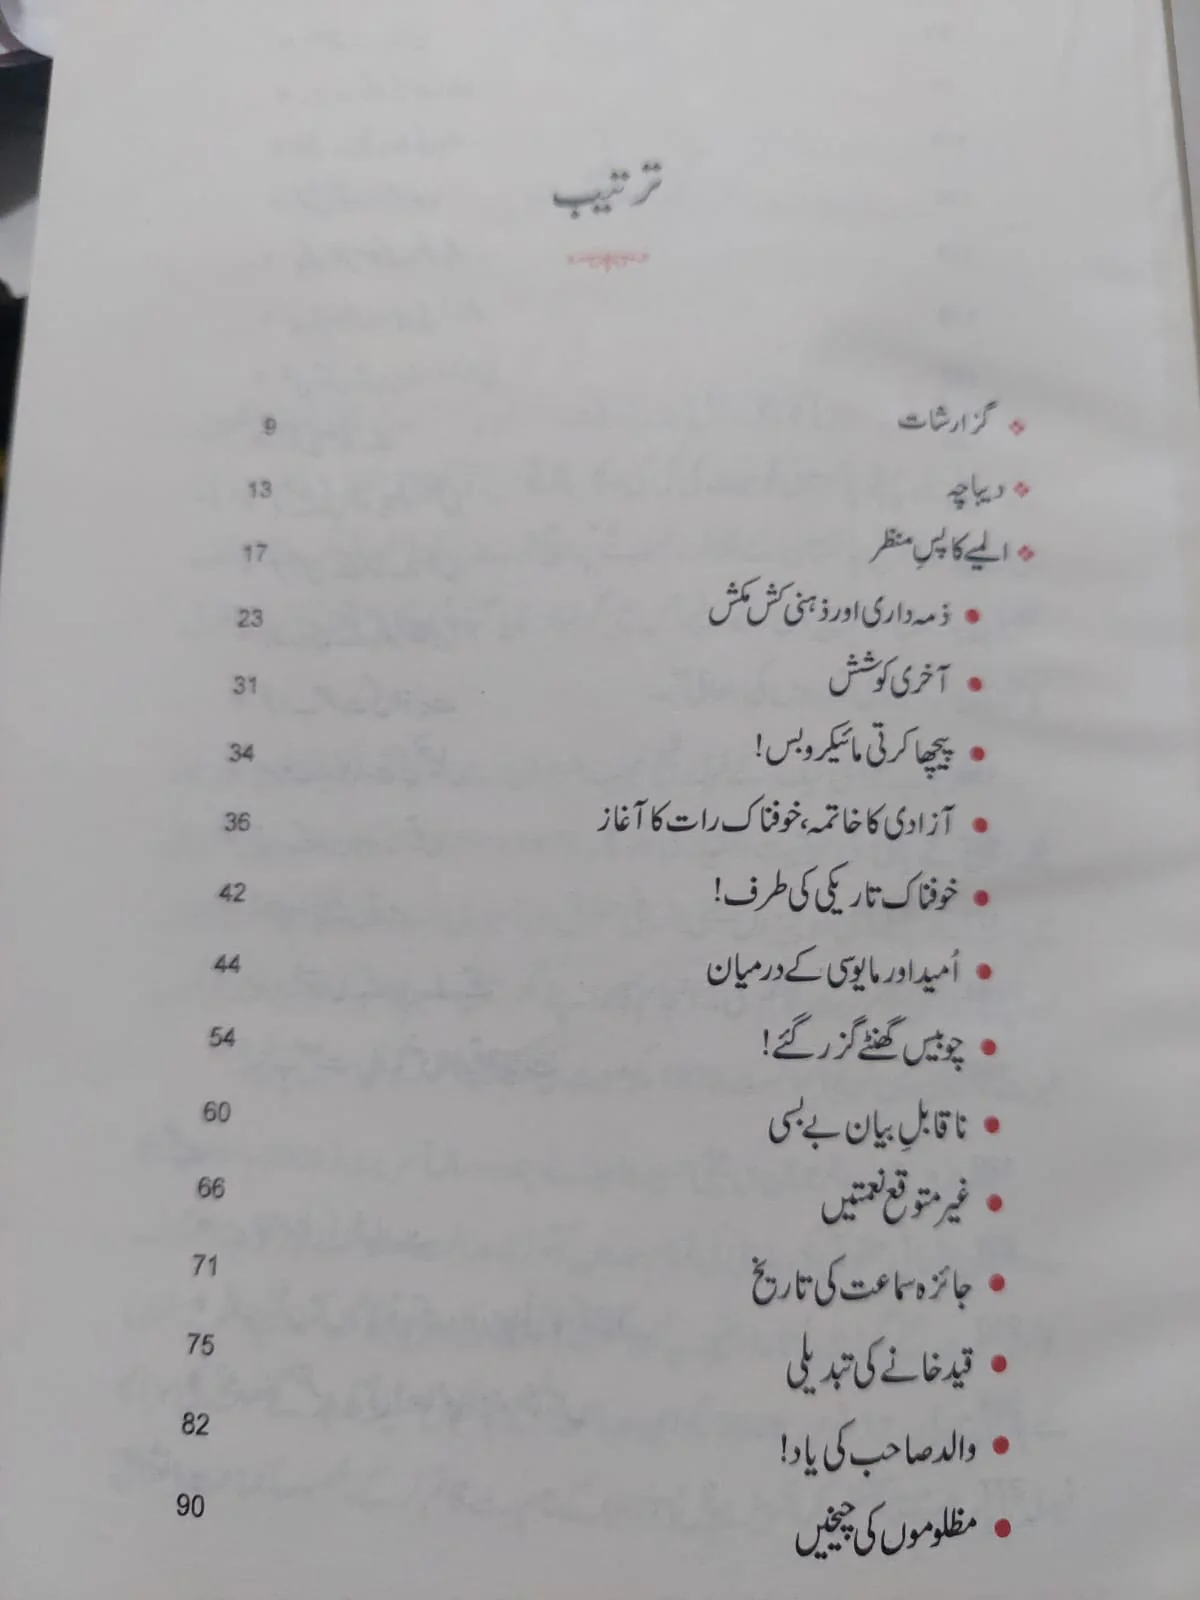 ترتیب
گزارشات 9
دیباچہ 13
المیے کا پسِ منظر 17
ذمہ داری اور ذہنی کش مکش 23
آخری کوشش 31
پیچھا کرتی مائیکرو بس! 34
آزادی کا خاتمہ، خوفناک رات کا آغاز 36
خوفناک تاریکی کی طرف! 42
اُمید اور مایوسی کے درمیان 44
چوبیس گھنٹے گزر گئے! 54
ناقابلِ بیان بے بسی 60
غیر متوقع نعمتیں 66
جائزہ سماعت کی تاریخ 71
قید خانے کی تبدیلی 75
والد صاحب کی یاد! 82
مظلوموں کی چیخیں 90